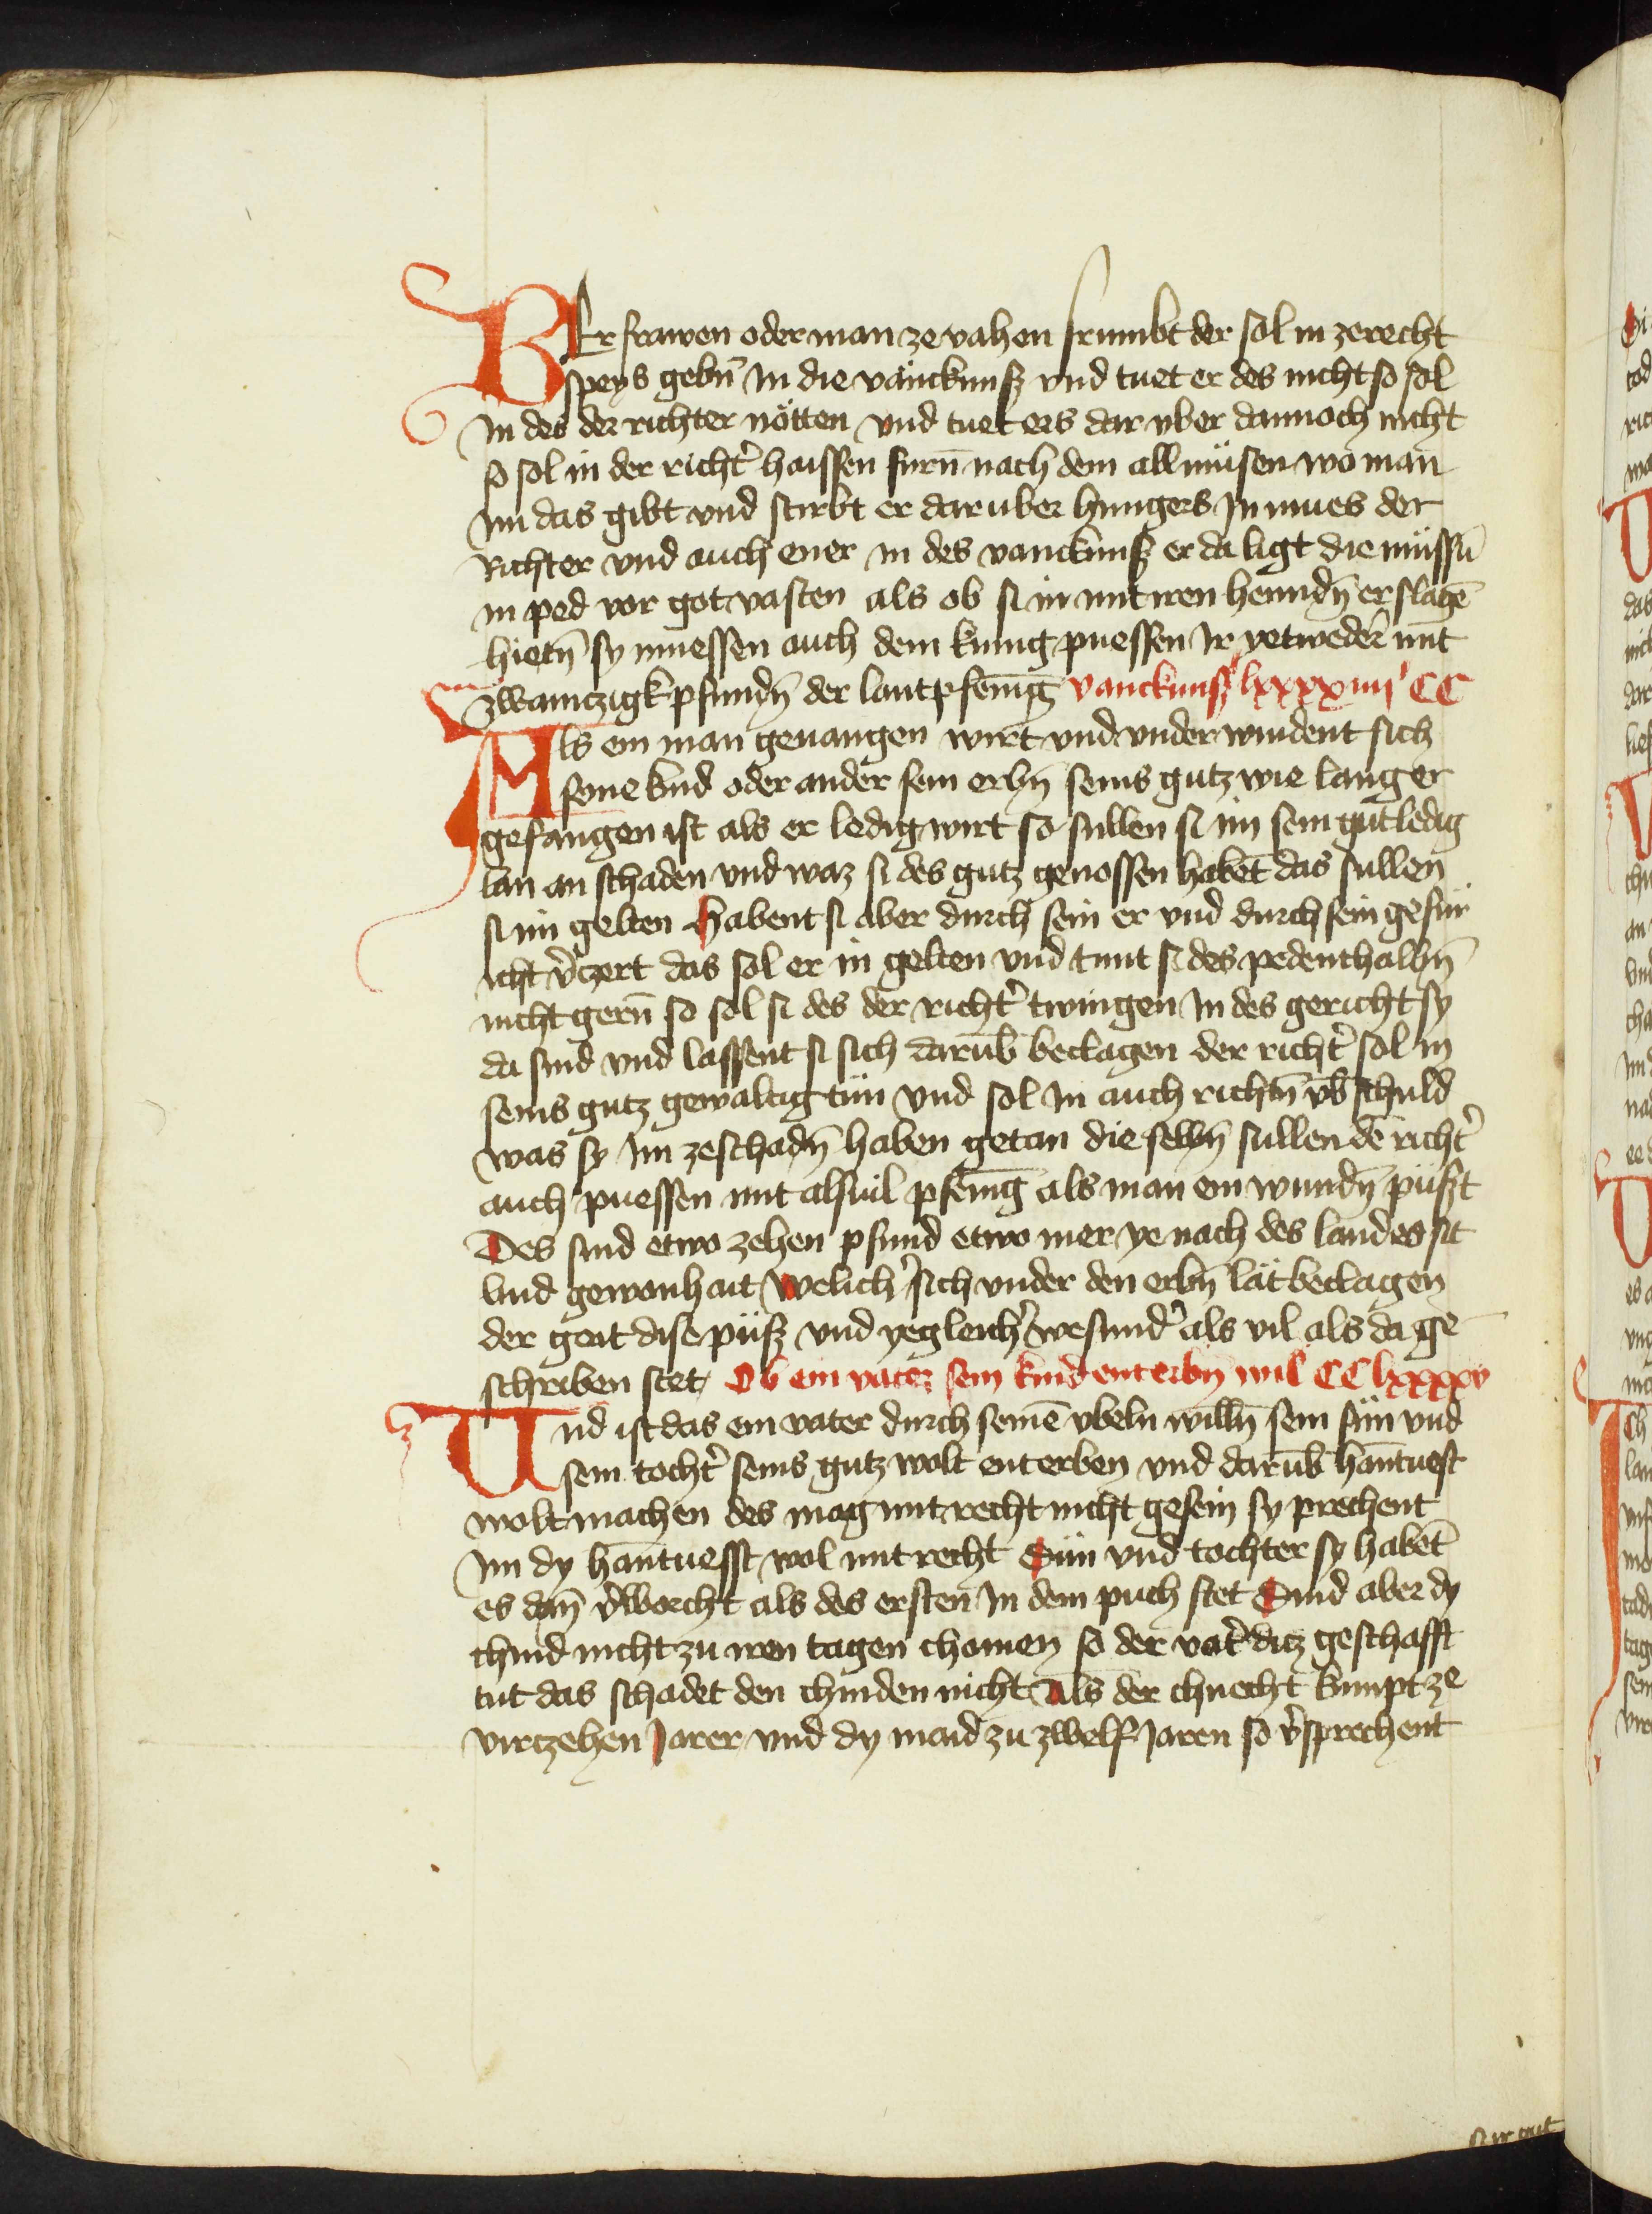 WEr frawen oder man ze vahen frumbt der sol in zerecht
speys gebn̄ In die vänckunsz vnd tuet er des nicht so sol
In des der richter nötten vnd tuet ers dar vber dannoch nicht
so sol in der richt̉ haissen furn̄ nach dem allmüsen wo man
Im das gibt vnd stirbt er daruber hungers In mues der
Richter vnd auch ener in des vanckunsz er da ligt die müssn̄
in ped vor got vasten als ob si in mit iren henndn̄ erslagē
hietn̄ sy muessen auch dem kunig puessen Ir yetweder mit
zwainczigk pfundn̄ der lantpfenīg vanckunsz lxxxxiiij CC
Als ein man geuangen wirt vnd vnder windent sich
seine kind oder ander sein erbn̄ seins gutz wie lang er
gefangen ist als er ledig wirt so sullen si im sein gut ledig
lan an schaden vnd waz si des gutz genossen habēt das sullen
si im gelten Habent si aber durch sein er vnd durch sein gefür
icht v̉czert das sol er in gelten vnd tunt si des pedenthalbn̄
nicht gern̄ so sol si des der richt̉ twingen In des gericht sy
da sind vnd lassent si sich darūb beclagen der richt̉ sol in
seins gutz gewaltig tün vnd sol In auch richtn̄ vb̄ schuld
was sy Im zeschadn̄ haben getan die selbn̄ sullen dē richt̉
auch puessen mit alsuil pfenīg als man ein wundn̄ püszt
Des sind etwo zehen pfund etwo mer ye nach des landes sit
vnd gewonhait Welich̉ sich vnder den erbn̄ lät beclagen
der geit dise püsz vnd yegleich̉ wesund̉ als vil als da ge
schriben stet Ob ein vater sein kind enterbn̄ wil CC lxxxxv
Und ist das ein vater durch seinē vbeln willn̄ sein sün vnd
sein tocht̉ seins gutz wolt enterben vnd darūb hantuest
wolt machen des mag mit recht nicht gesein sy prechent
Im dy hantuesst wol mit recht Sün vnd tochter sy habēt
es dan̄ v̉worcht als des ersten In dem puch stet Sind aber dy
chind nicht zu iren tagen chomen so der vat̉ ditz geschafft
tut das schadet den chinden nicht Als der chnecht kumpt ze
virczehen Jaren vnd dy maid zu zwelf Jaren so v̉sprechent